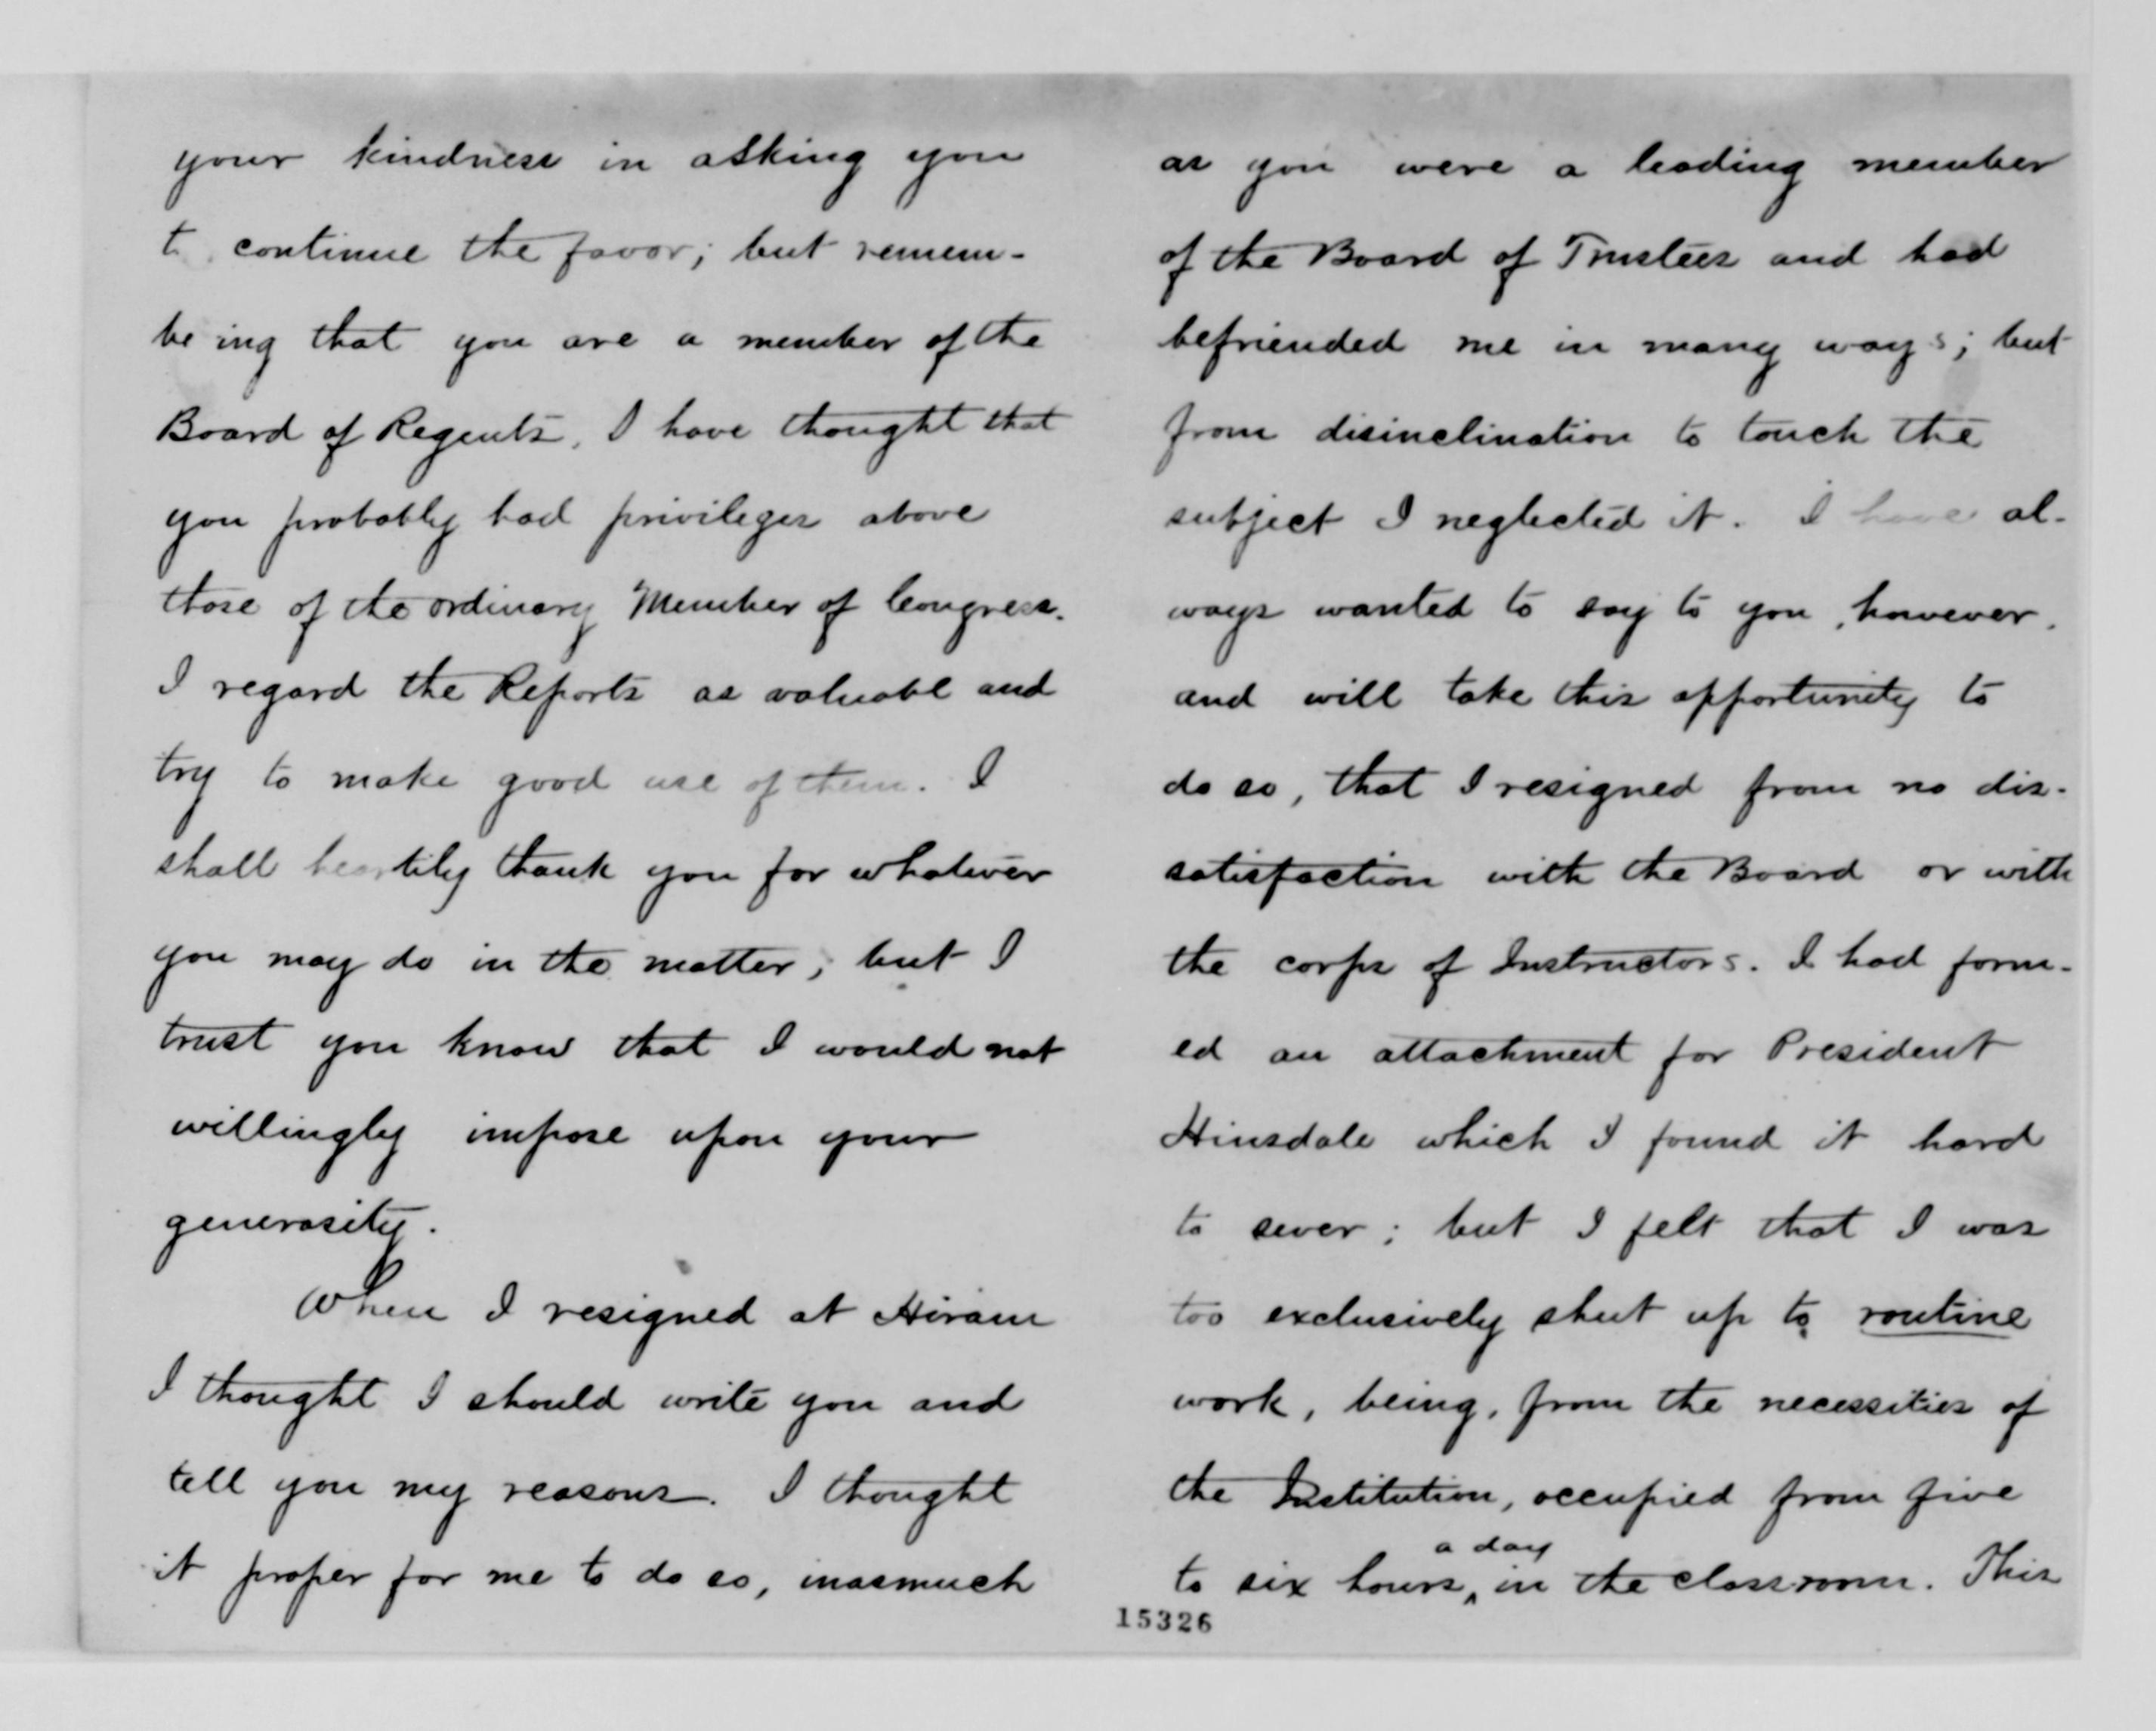 your kindness in asking you
to continue the favor; but remem-
bering that you are a member of the
Board of Regents, I have thought that
you probably had privileges above
those of the ordinary Member of Congress.
I regard the Reports as valuable and
try to make good use of them. I
shall heartily thank you for whatever
you may do in the matter; but I
trust you know that I would not
willingly impose upon your
generosity.
When I resigned at Hiram
I thought I should write you and
tell you my reasons. I thought
it proper for me to do so, inasmuch
as you were a leading member
of the Board of Trustees and had
befriended me in many ways; but
from disinclination to touch the
subject I neglected it. I have al-
ways wanted to say to you, however,
and will take this opportunity to
do so, that I resigned from no dis-
satisfaction with the Board or with
the corps of Instructors. I had form-
ed an attachment for President
Hinsdale which I found it hard
to sever; but I felt that I was
too exclusively shut up to routine
work, being, from the necessities of
the Institution, occupied from five
to six hours a day in the class-room. This
15326